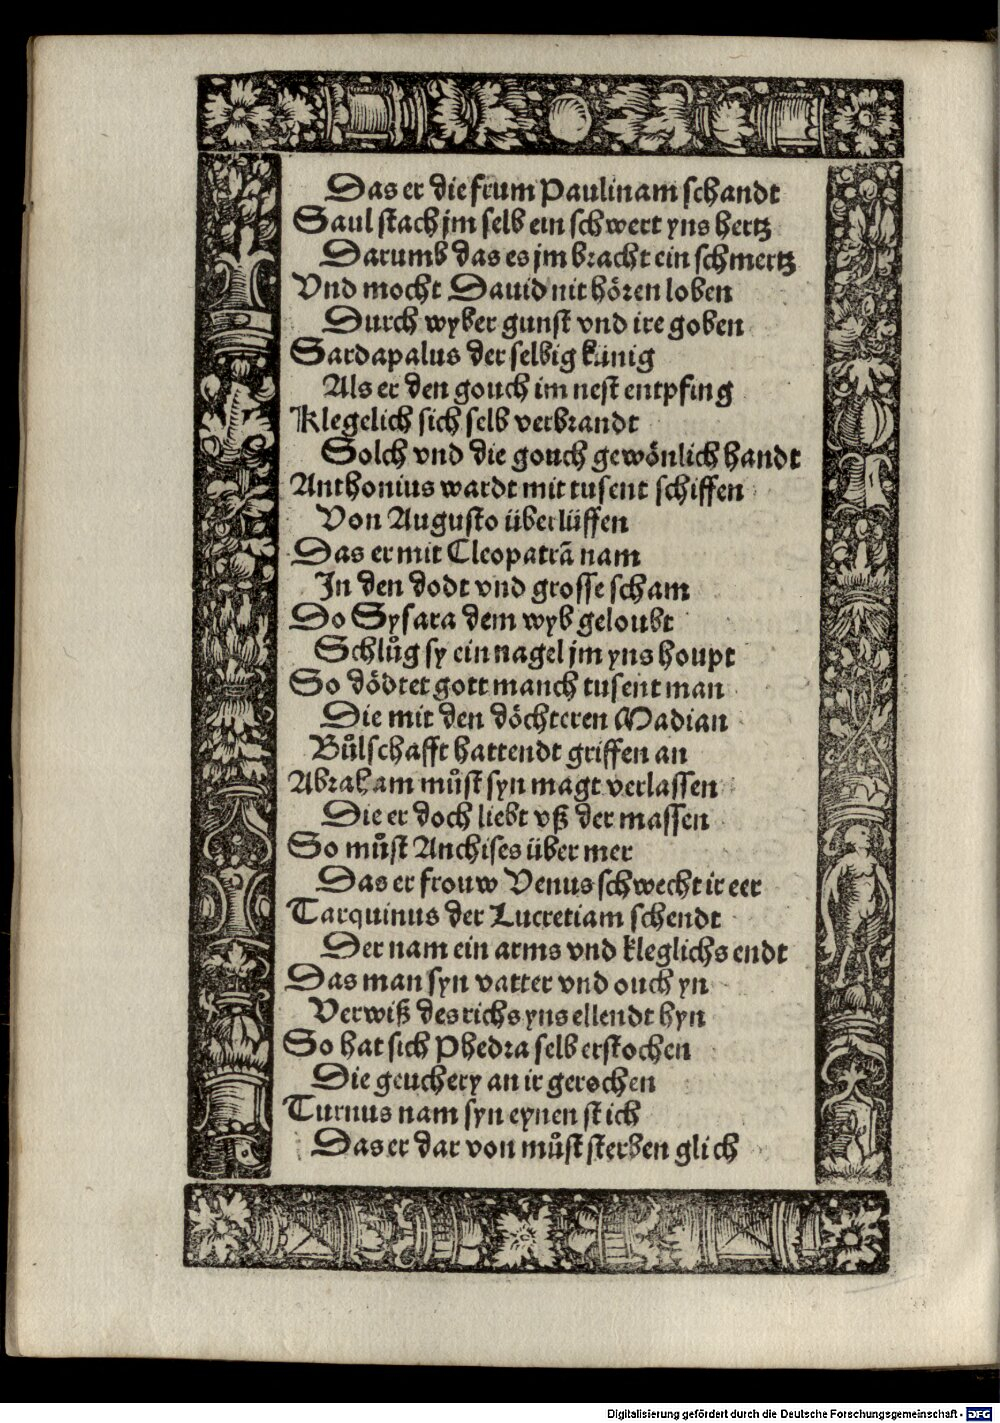 Das er die frum Paulinam schandt
Saul stach jm selb ein schwert yns hertz
Darumb das es jm bracht ein schmertz
Vnd mocht Dauid nit hören loben
Durch wyber gunst vnd ire goben
Sardapalus der selbig künig
Als er den gouch im nest entpfing
Klegelich sich selb verbrandt
Solch vnd die gouch gewönlich handt
Anthonius wardt mit tusent schiffen
Von Augusto überlüffen
Das er mit Cleopatrā nam
In den dodt vnd grosse scham
Do Sysara dem wyb geloubt
Schlůg sy ein nagel jm yns houpt
So dödtet gott manch tusent man
Die mit den döchteren Madian
Bůlschafft hattendt griffen an
Abraham můst syn magt verlassen
Die er doch liebt vß der massen
So můst Anchises über mer
Das er frouw Venus schwecht ir eer
Tarquinus der Lucretiam schendt
Der nam ein arms vnd kleglichs endt
Das man syn vatter vnd ouch yn
Verwiß des richs yns ellendt hyn
So hat sich Phedra selb erstochen
Die geuchery an ir gerochen
Turnus nam syn eynen stich
Das er dar von můst sterben glich
Digitalisierung gefördert durch die Deutsche Forschungsgemeinschaft - DFG